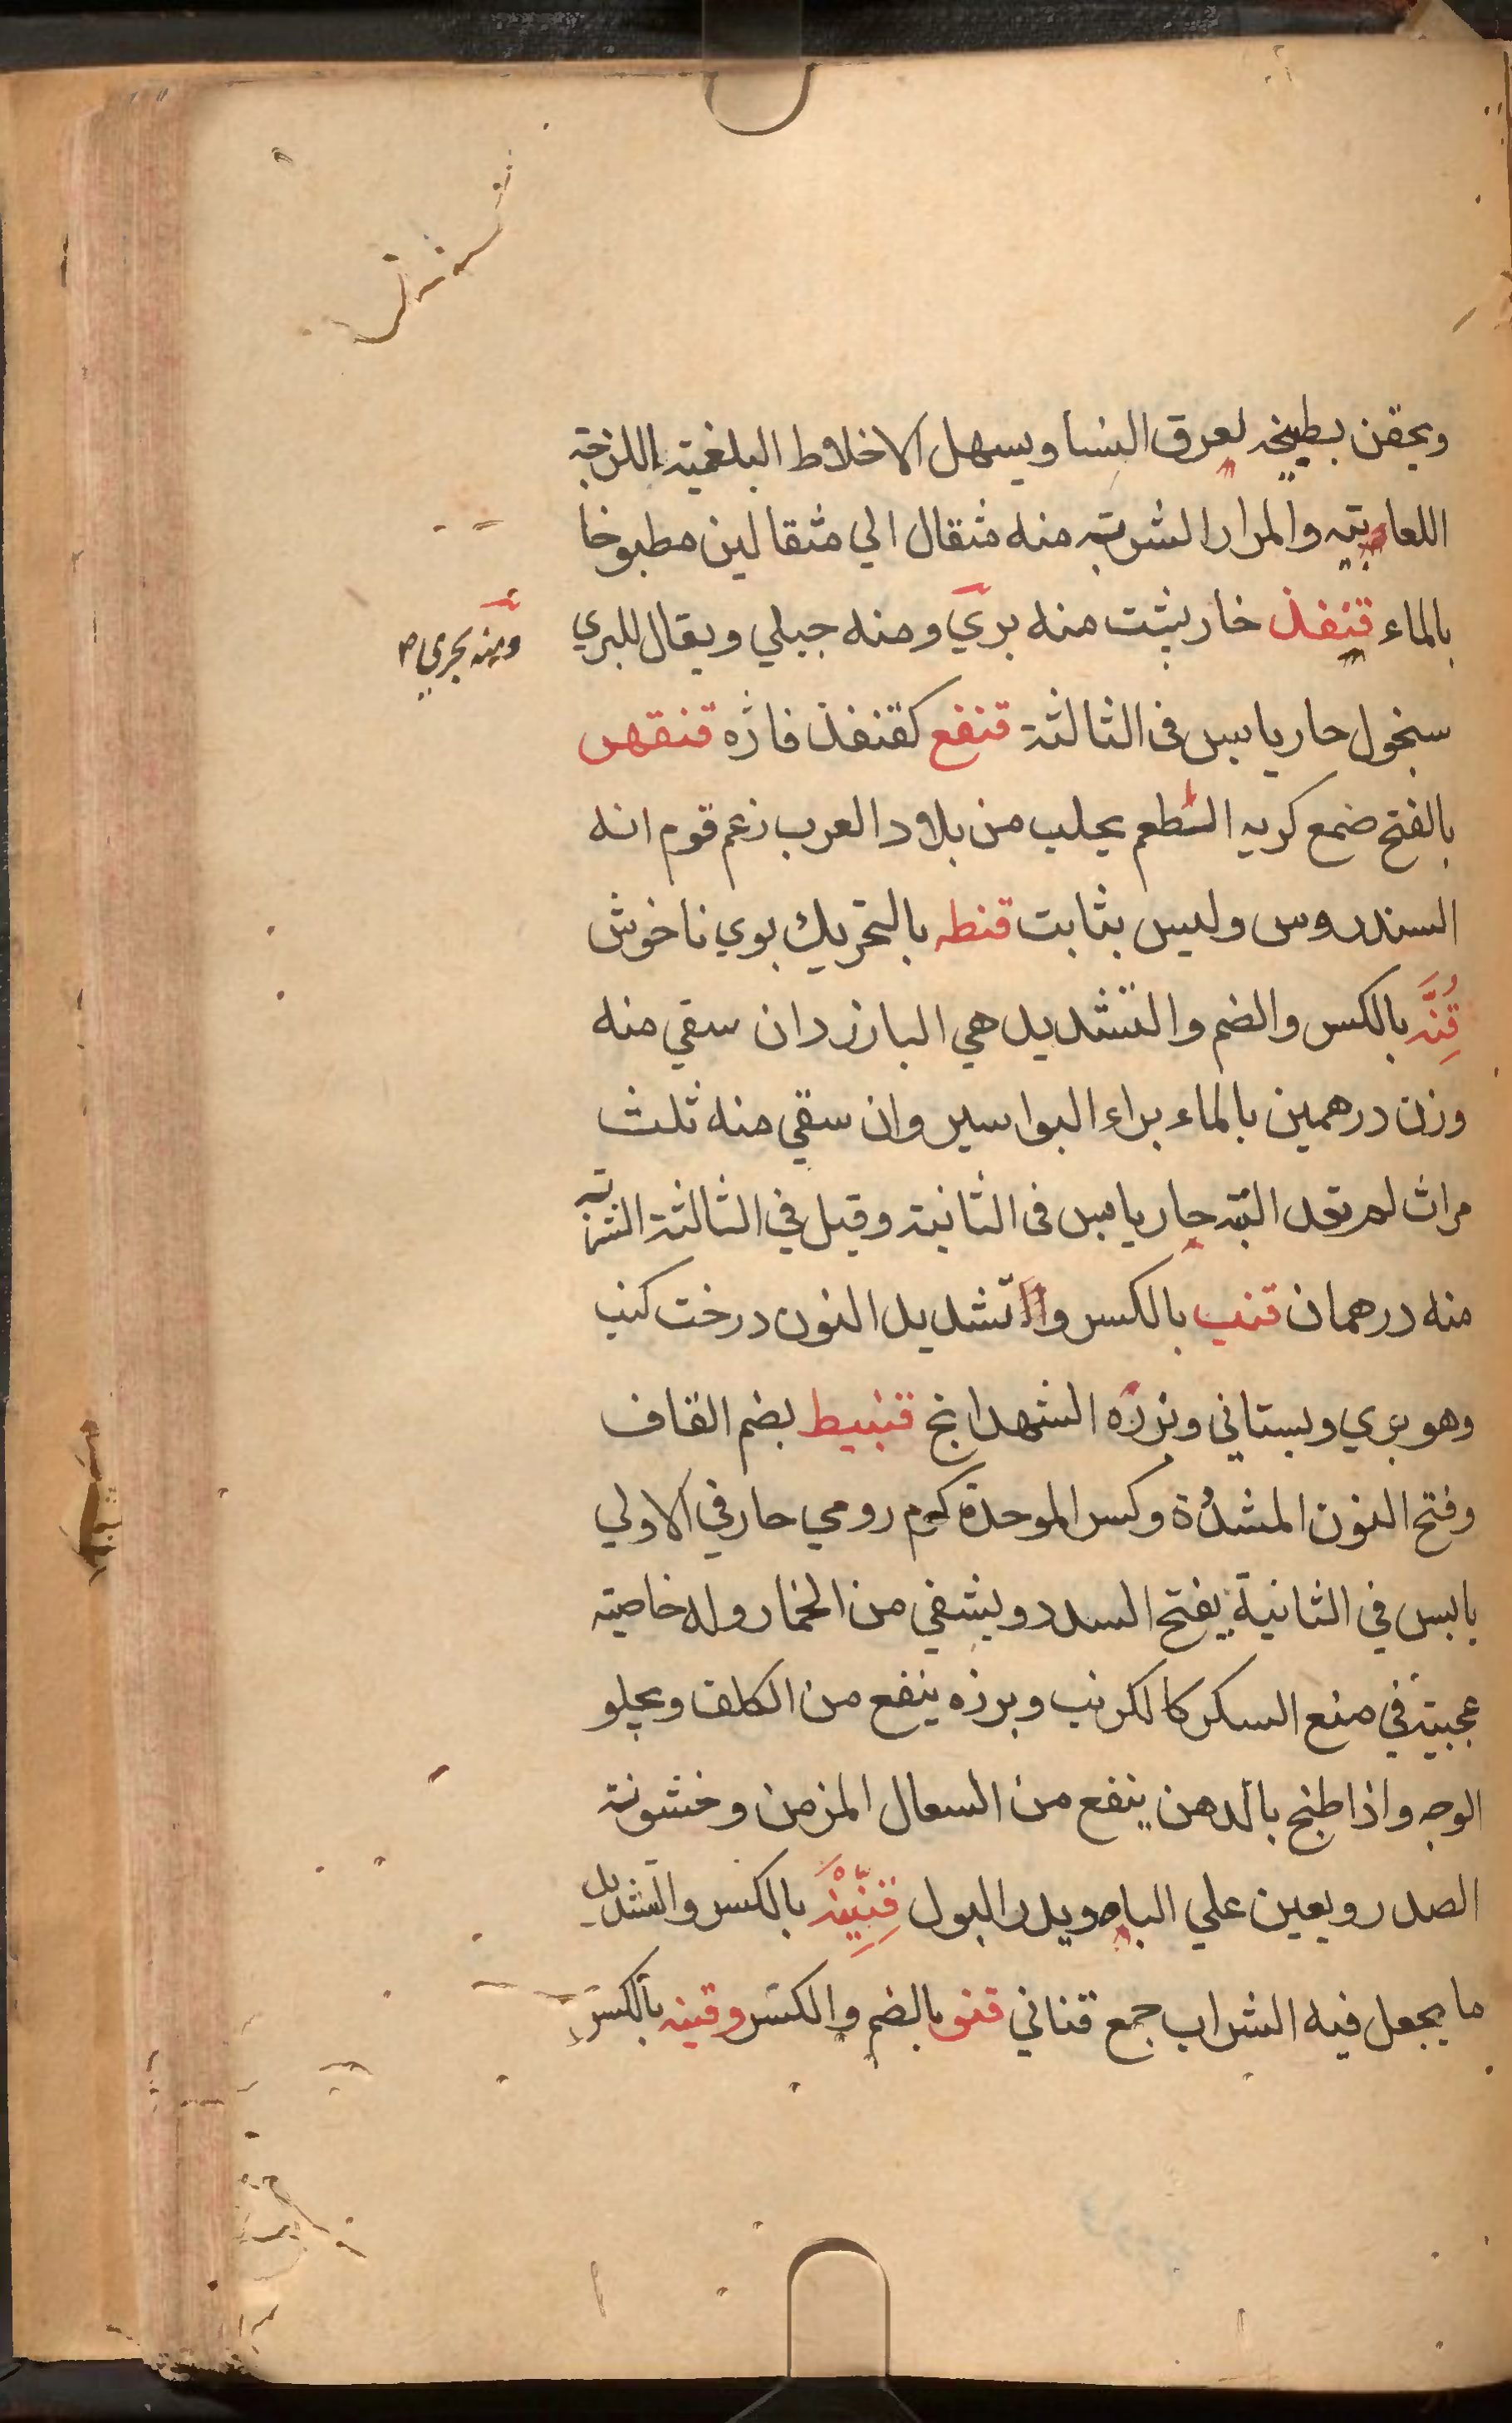 ويحقن بطبيخه لعرق النسا ويسهل الاخلاط البلغمية اللزجة
اللعابية والمرار الشربة منه مثقال الي مثقالين مطبوخا
بالماء قنفذ خارپشت منه بري ومنه جبلي ويقال للبري
ومنه بحري
سنخول حار يابس فى الثالثة قنفع كقنفذ فاره قنقهر
بالفتح ضمع كريه الطعم يجلب من بلاد العرب زعم قوم انه
السندروس وليس بثابت قنطه بالتحريك بوي ناخوش
قِنَّه بالكسر والضم والتشديد هي البارزد ان سقي منه
وزن درهمين بالماء براء البواسير وان سقي منه ثلث
مرات لم تعد البته حار يابس فى الثانية وقيل في الثالثة الشربة
منه درهمان قنب بالكسر والتشديد النون درخت كنب
وهو بري وبستاني وبزره الشهدانج قنبيط بضم القاف
وفتح النون المشدّدة وكسر الموحدة كرم رومي حار في الاولي
يابس في الثانية يفتح السدد ويشفي من الخمار وله خاصية
عجيبة في منع السكر كالكرنب وبرزه ينفع من الكلف ويجلو
الوجه واذا طبخ بالدهن ينفع من السعال المزمن وخشونة
الصدر ويعين علي الباه ويدر البول قِنِّينَه بالكسر والتشديد
ما يجعل فيه الشراب جمع قناني قنو بالضم والكسر وقينه بالكسر